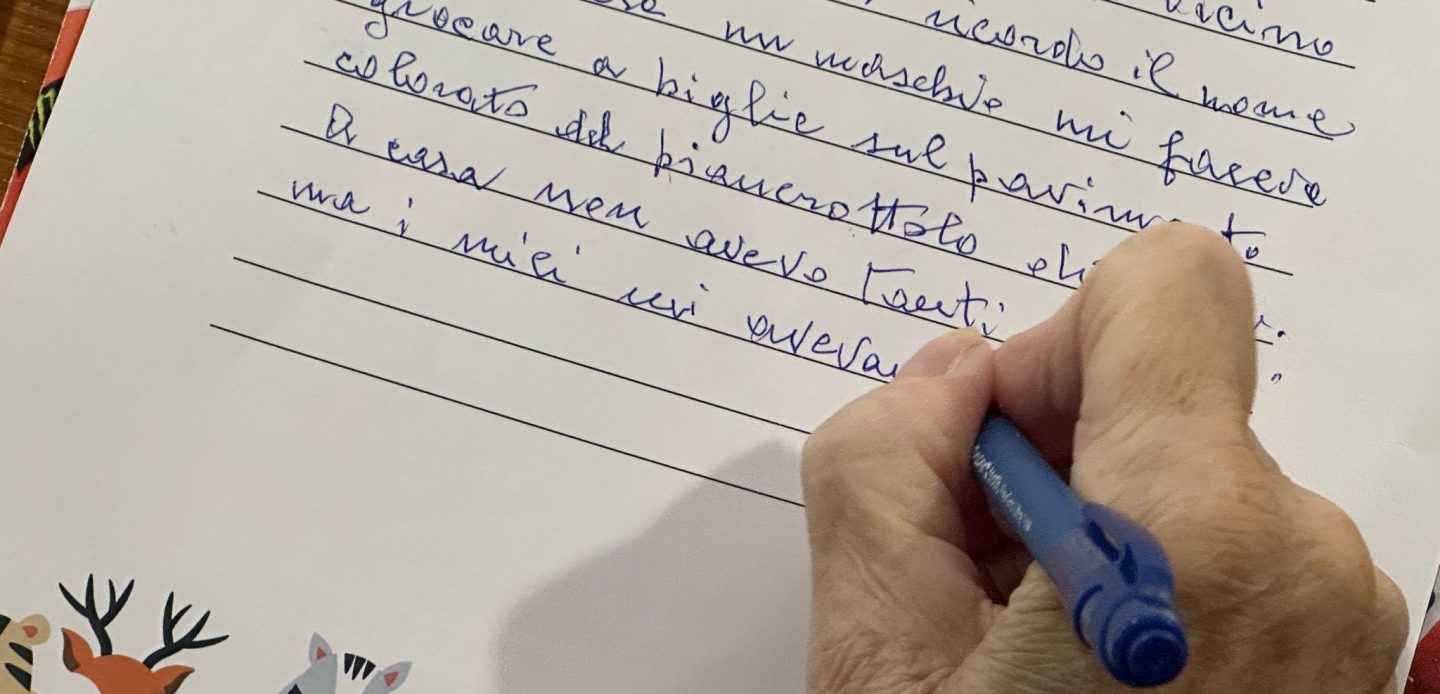 vicino
ricordo il nome
un maschio mi faceva
giocare a biglie sul pavimento
colorato del pianerottolo
A casa non avevo tanti
ma i miei mi avevan